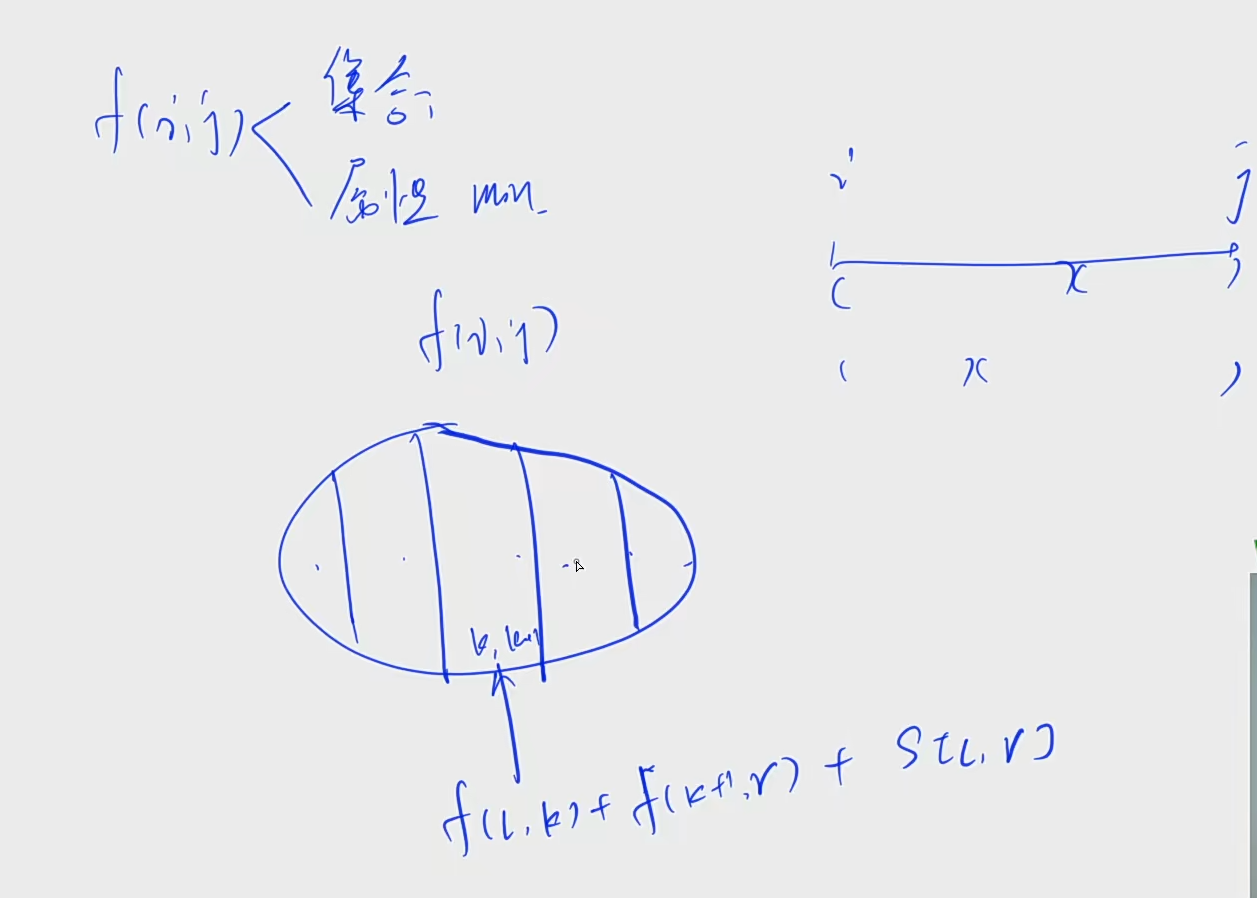 f(i,j)
集合
属性 min
i j
( x )
f(i,j)
( x )
k, k+1
f(l,k)+f(k+1,r)+S[l,r]